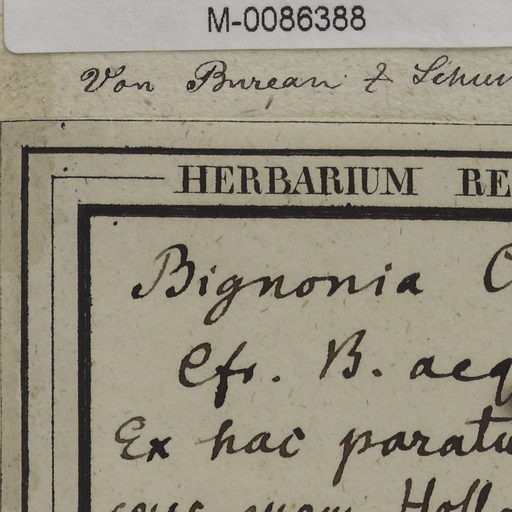 M-0086388
Von Bureau & Schum
HERBARIUM RE
Bignonia C
Cfr. B. aeq
Ex hac paratu
quam Holl